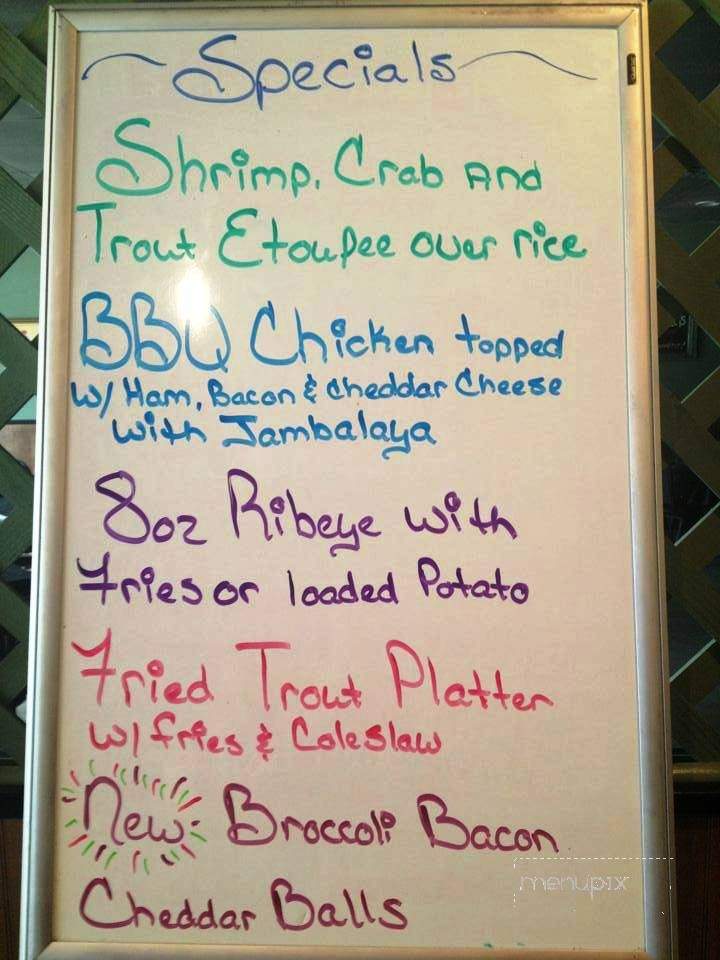 Specials
Shrimp, Crab And
Trout Etoufee over rice
BBQ Chicken topped
w/ Ham, Bacon & Cheddar Cheese
with Jambalaya
8oz Ribeye with
Fries or loaded Potato
Fried Trout Platter
w/ fries & Coleslaw
New Broccoli Bacon
Cheddar Balls
menupix